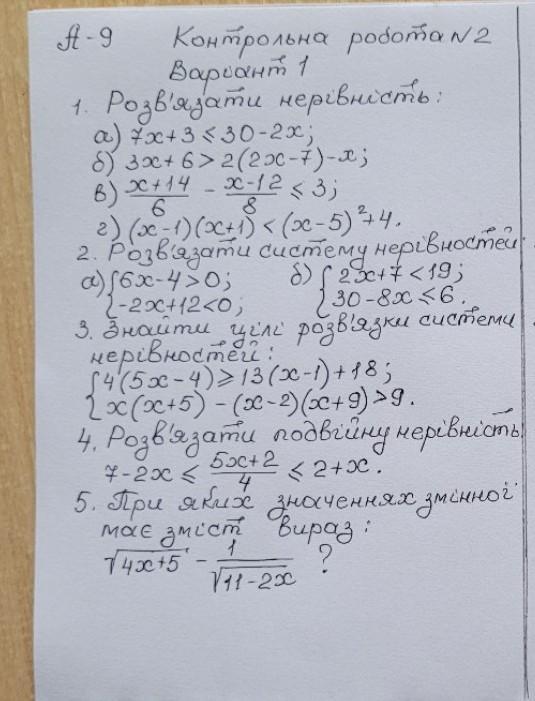 А-9 Контрольна робота N2
Варіант 1
1. Розв'язати нерівність:
а) 7x+3 ≤ 30-2x;
б) 3x+6 > 2(2x-7)-x;
в) (x+14)/6 - (x-12)/8 ≤ 3;
г) (x-1)(x+1) < (x-5)²+4.
2. Розв'язати систему нерівностей:
а) { 6x-4>0; б) { 2x+7<19;
-2x+12<0; 30-8x ≤ 6.
3. Знайти цілі розв'язки системи
нерівностей:
{ 4(5x-4) ≥ 13(x-1)+18;
x(x+5) - (x-2)(x+9) > 9.
4. Розв'язати подвійну нерівність
7-2x ≤ (5x+2)/4 ≤ 2+x.
5. При яких значеннях змінної
має зміст вираз:
√(4x+5) - 1/√(11-2x) ?